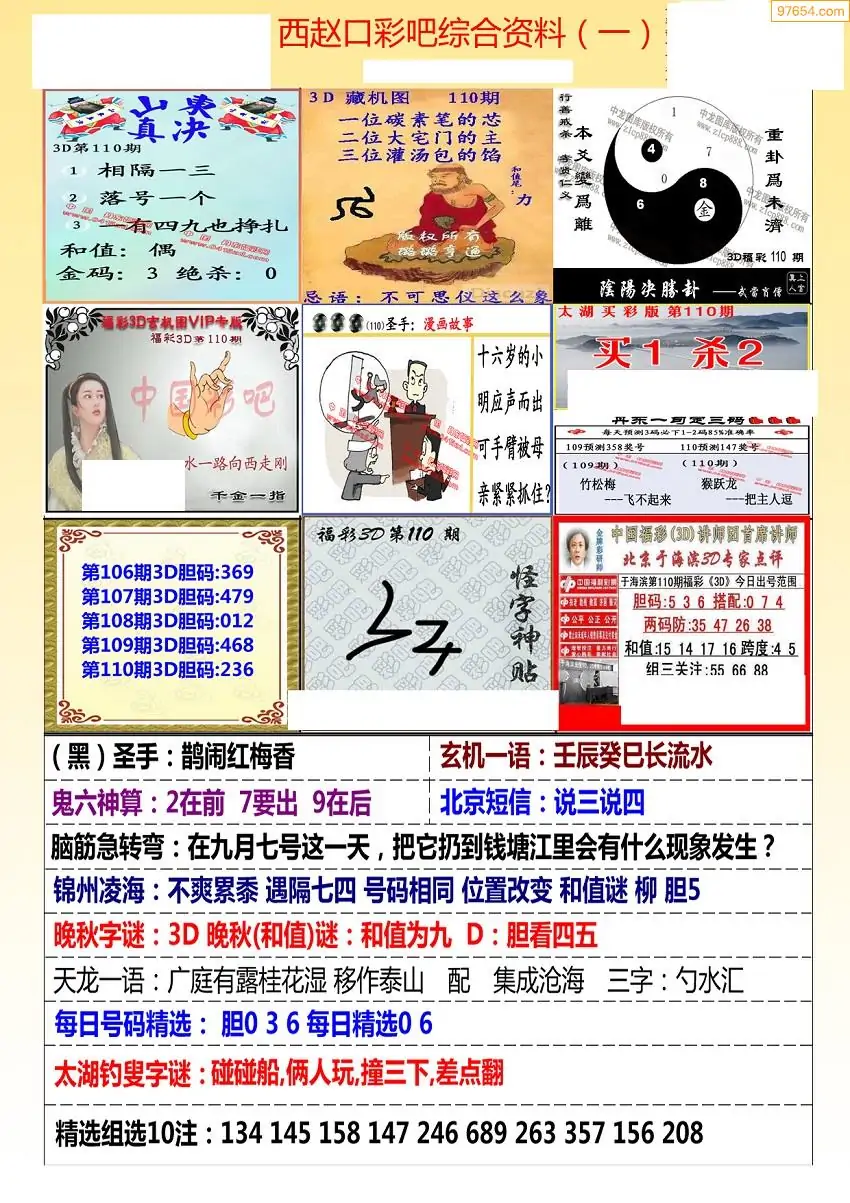 97654.com
西赵口彩吧综合资料（一）
山夷
真决
3D第110期
1 相隔一三
2 落号一个
3 一有四九也挣扎
和值： 偶
金码： 3 绝杀： 0
3D 藏机图 110期
一位碳素笔的芯
二位大宅门的主
三位灌汤包的馅
和值尾：力
版权所有
忌语：不可思仪这么象
行善戒杀
孝贤仁义
本爻變爲離
重卦爲未濟
中龙图库版权所有
www.zlcp888.com
1
4
7
0
8
6
金
3D福彩 110 期
陰陽决勝卦 ——武當肖僧
福彩3D玄机图VIP专版
福彩3D第110期
中国彩吧
水一路向西走刚
千金一指
(110)圣手：漫画故事
十六岁的小
明应声而出
可手臂被母
亲紧紧抓住?
太湖买彩版 第110期
买1 杀2
丹东一句定三码
每天预测3码必下1-2码85%准确率
109预测358奖号 110预测147奖号
（109期） （110期）
竹松梅 猴跃龙
---飞不起来 ---把主人逗
第106期3D胆码:369
第107期3D胆码:479
第108期3D胆码:012
第109期3D胆码:468
第110期3D胆码:236
福彩3D第110 期
怪字神贴
金牌彩研师
中国福彩(3D)讲师团首席讲师
北京于海滨3D专家点评
中国福利彩票
于海滨第110期福彩《3D》今日出号范围
胆码:5 3 6 搭配:0 7 4
公平 公正 公开
两码防:35 47 26 38
和值:15 14 17 16 跨度:4 5
组三关注:55 66 88
（黑）圣手：鹊闹红梅香
玄机一语：壬辰癸巳长流水
鬼六神算：2在前 7要出 9在后
北京短信：说三说四
脑筋急转弯：在九月七号这一天，把它扔到钱塘江里会有什么现象发生？
锦州凌海：不爽累黍 遇隔七四 号码相同 位置改变 和值谜 柳 胆5
晚秋字谜：3D 晚秋(和值)谜：和值为九 D：胆看四五
天龙一语：广庭有露桂花湿 移作泰山 配 集成沧海 三字：勺水汇
每日号码精选： 胆0 3 6 每日精选0 6
太湖钓叟字谜：碰碰船,俩人玩,撞三下,差点翻
精选组选10注：134 145 158 147 246 689 263 357 156 208